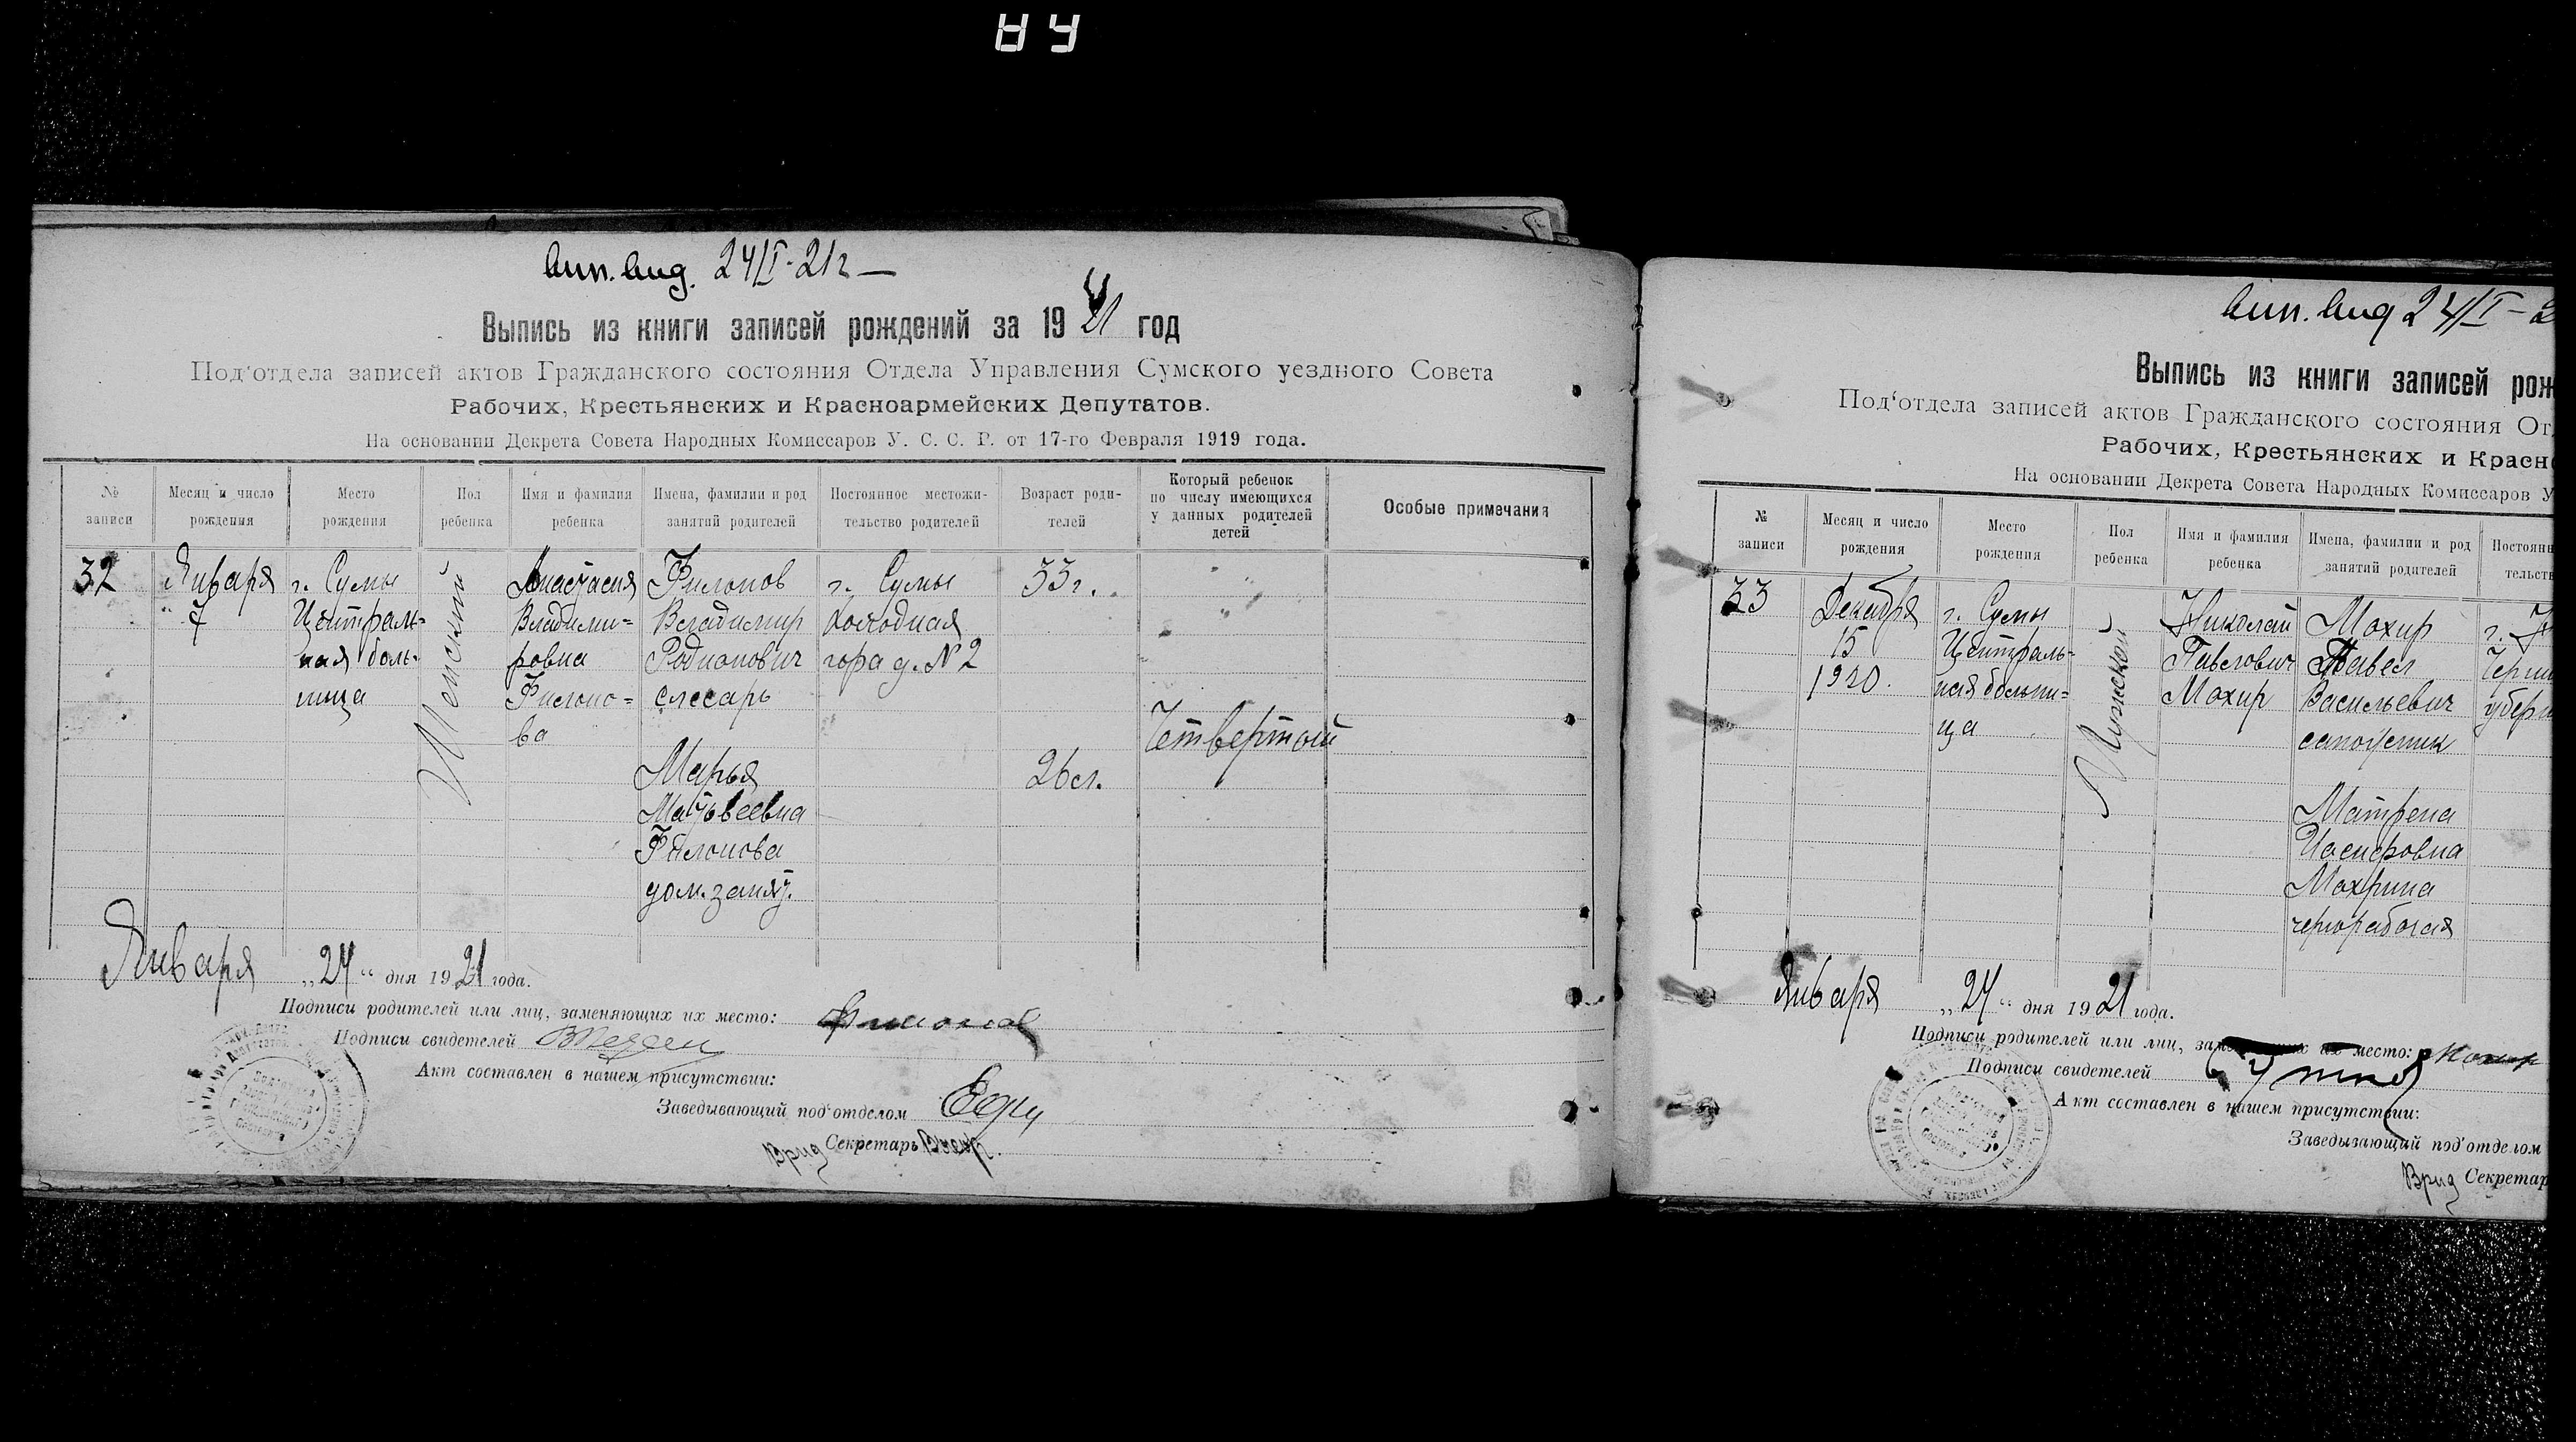 вып. выд. 24/I-21г
Выпись из книги записей рождений за 1921 год
Под'отдела записей актов Гражданского состояния Отдела Управления Сумского уездного Совета
Рабочих, Крестьянских и Красноармейских Депутатов.
На основании Декрета Совета Народных Комиссаров У. С. С. Р. от 17-го Февраля 1919 года.
№ записи
Месяц и число рождения
Место рождения
Пол ребенка
Имя и фамилия ребенка
Имена, фамилии и род занятий родителей
Постоянное местожи-
тельство родителей
Возраст роди-
телей
Который ребенок
по числу имеющихся
у данных родителей
детей
Особые примечания
32
Января
7
г. Сумы
Централь=
ная боль-
ница
Женский
Анастасия
Владими=
ровна
Филоно=
ва
Филонов
Владимир
Родионович
слесарь
Марья
Матвеевна
Филонова
дом. занят.
г. Сумы
Холодная
гора д. № 2
33 г.
26 л.
Четвертый
Января „24“ дня 1921 года.
Подписи родителей или лиц, заменяющих их место: Филонов
Подписи свидетелей
Акт составлен в нашем присутствии:
Заведывающий под'отделом
Врид Секретарь
вып. выд 24/I-2
Выпись из книги записей рож
Под'отдела записей актов Гражданского состояния От
Рабочих, Крестьянских и Красн
На основании Декрета Совета Народных Комиссаров У
№ записи
Месяц и число рождения
Место рождения
Пол ребенка
Имя и фамилия ребенка
Имена, фамилии и род занятий родителей
Постоянн
тельств
33
Декабря
15
1920.
г. Сумы
Централь-
ная больни=
ца
Мужской
Николай
Павлович
Мохир
Мохир
Павел
Васильевич
сапожник
Матрена
Иосифовна
Мохрина
чернорабочая
г.
Черни
губерн
Января „24“ дня 1921 года.
Подписи родителей или лиц, заменяющих их место: Мохир
Подписи свидетелей
Акт составлен в нашем присутствии:
Заведывающий под'отделом
Врид Секретар